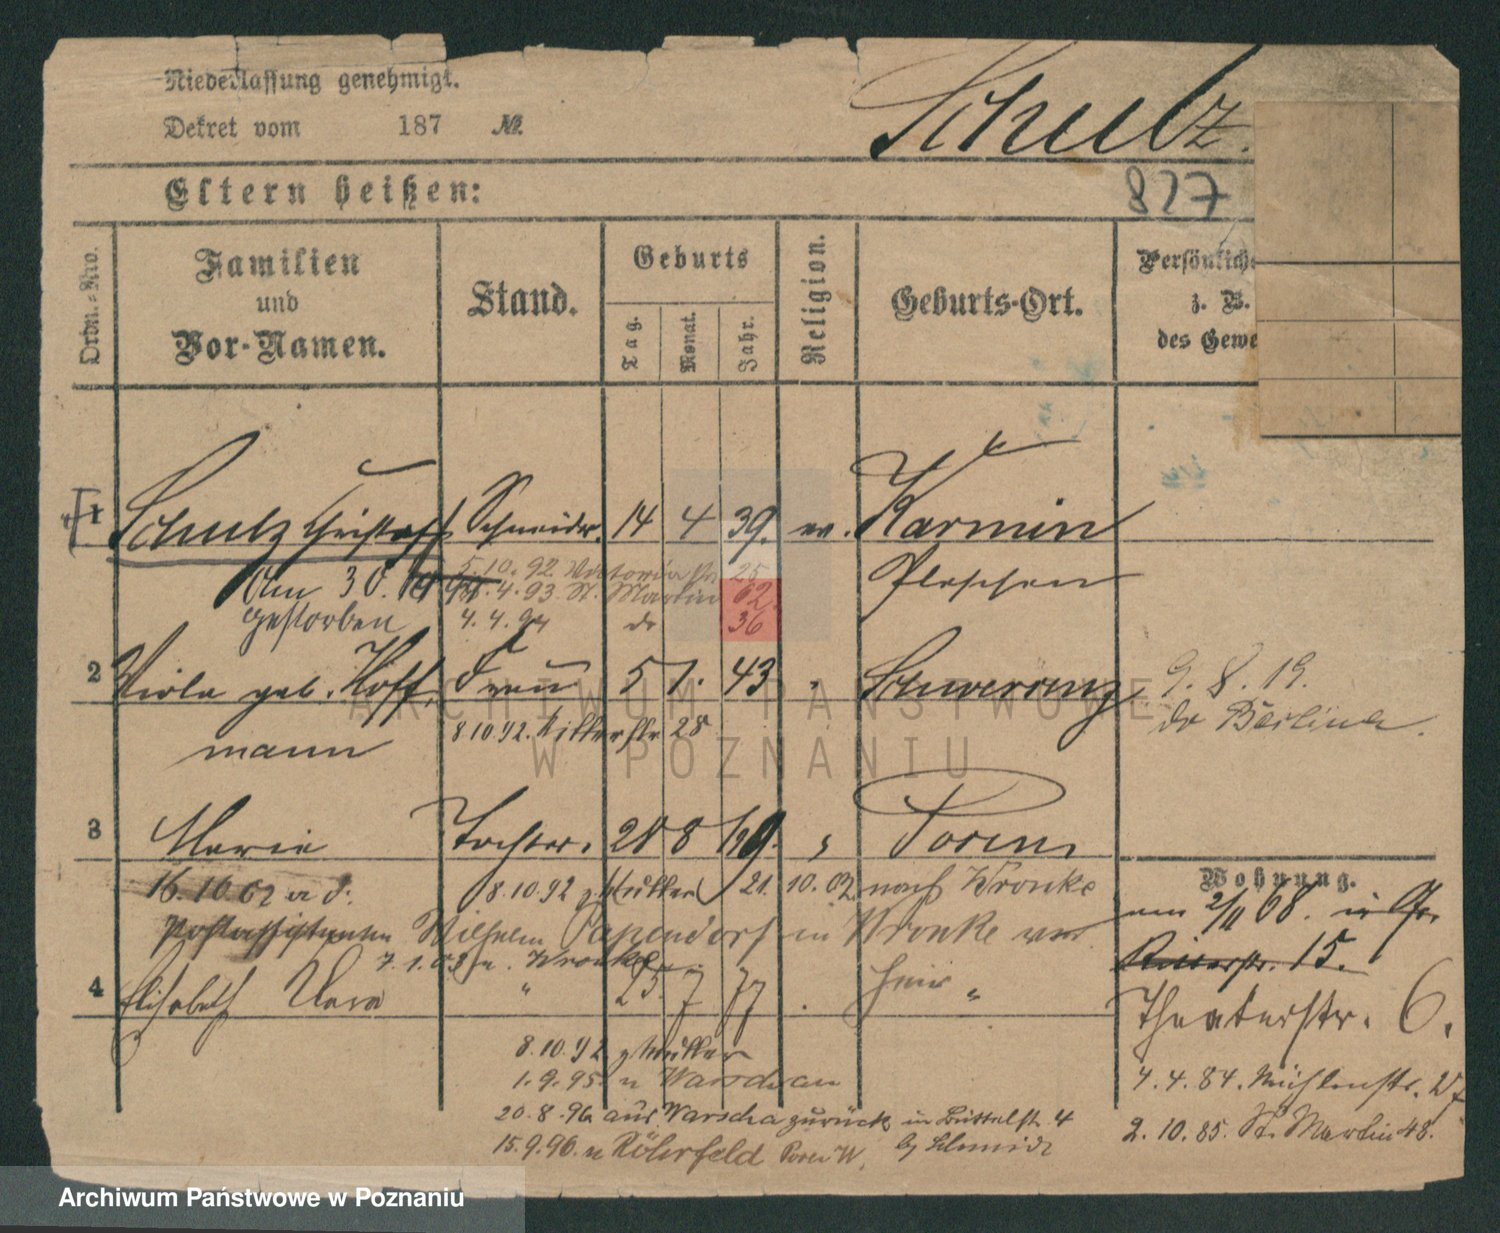 Niederlassung genehmigt.
Dekret vom 187 №
Schulz.
Eltern heißen:
827
Ordn.-Nro.
Familien
und
Vor-Namen.
Stand.
Geburts
Tag.
Monat.
Jahr.
Religion.
Geburts-Ort.
Persönliche
z. B.
des Gewe
1 Schulz Christoph Schneider. 14 4 39. ev. Karmin
Pleschen
Am 30.
gestorben
5.10.92 Victoria str 25
4.93. St. Martin 62
4.4.94 do 36
2 geb. Hoff Frau 5 1. 43 " Schwersenz
mann
8.10.92. Ritterstr 28
9. 8. 19.
do Berlin
3 Marie Tochter. 28 8 69. " Posen
16.10.02
8.10.92 z Mutter 21.10.02 nach Wronke
Wilhelm Papendorf in Wronke
7.1.03 n. Wronke
4 Elisabeth " 25. 7 77 . hier "
Wohnung.
am 2/11 68. in Gr.
Ritterstr. 15.
Theaterstr. 6.
4.4.84. Mühlenstr. 27
2.10.85. St. Martin 48.
8.10.92 z Mutter
1.9.95 n Warschau
20.8.96 aus Warscha zurück in Büttelstr 4
by Schmidt
15.9.96. n Röhrfeld Posen W.
ARCHIWUM PAŃSTWOWE
W POZNANIU
Archiwum Państwowe w Poznaniu